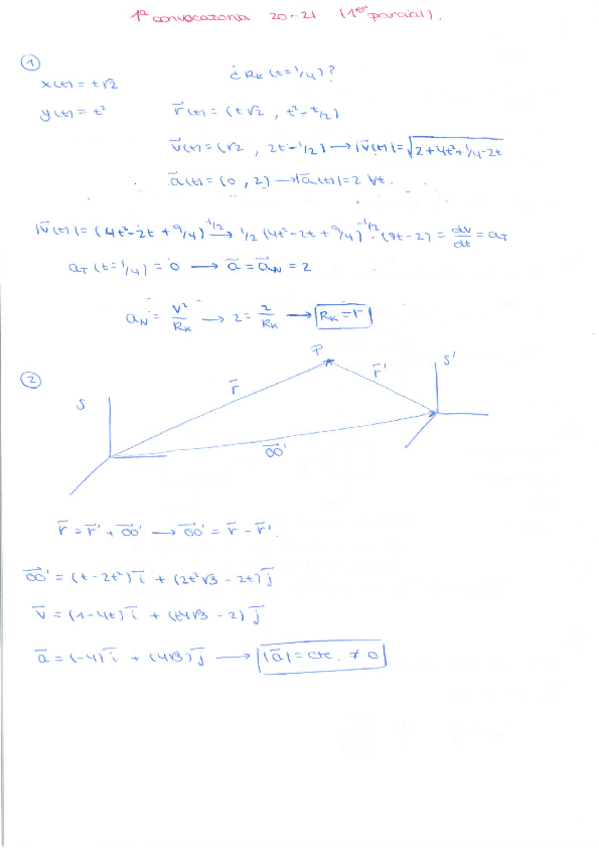 1ª convocatoria 20-21 (1er parcial).
①
x(t) = t√2 ¿RK (t=1/4)?
y(t) = t² r̄(t) = (t√2 , t² - t/2)
v̄(t) = (√2 , 2t - 1/2) → |v̄(t)| = √2 + 4t² + 1/4 - 2t
ā(t) = (0 , 2) → |ā(t)| = 2 ∀t.
|v̄(t)| = (4t² - 2t + 9/4)^1/2 → 1/2 (4t² - 2t + 9/4)^-1/2 · (8t - 2) = dv/dt = aT
aT (t = 1/4) = 0 → ā = āN = 2
aN = v²/RK → 2 = 2/RK → RK = 1
②
S P S'
r̄ r̄'
OO'
r̄ = r̄' + OO' → OO' = r̄ - r̄'.
OO' = (t - 2t²) i + (2t²√3 - 2t) j
v̄ = (1 - 4t) i + (t4√3 - 2) j
ā = (-4) i + (4√3) j → |ā| = cte. ≠ 0